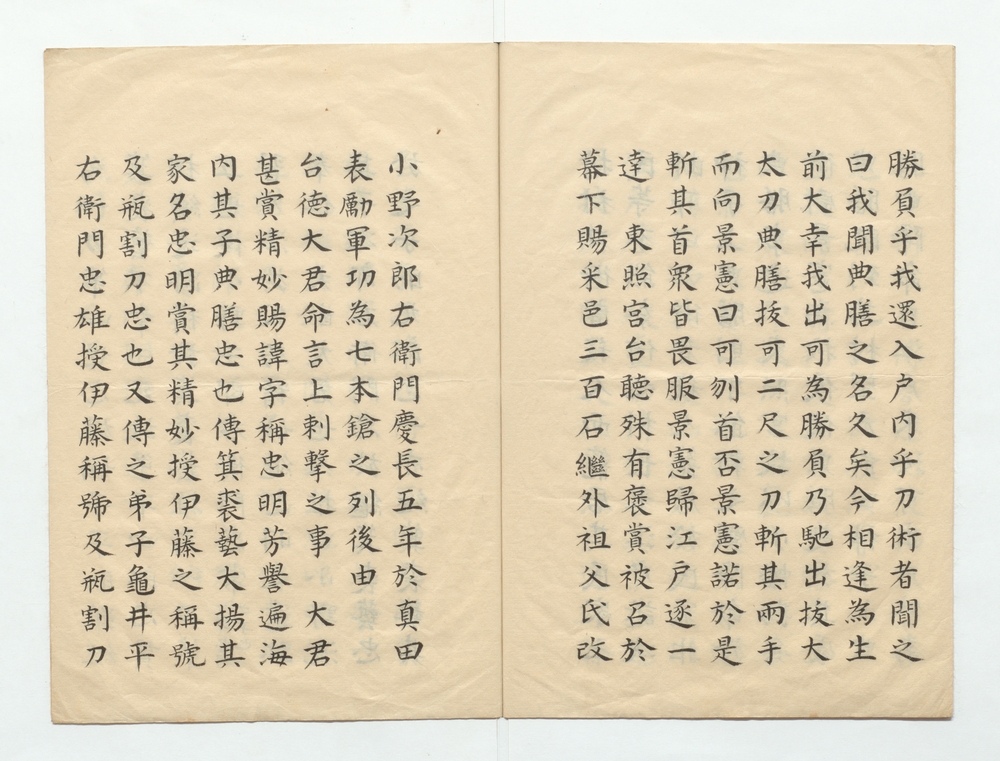 勝負乎我還入戸内乎刀術者聞之
曰我聞典膳之名久矣今相逢為生
前大幸我出可為勝負乃馳出抜大
太刀典膳抜可二尺之刀斬其兩手
而向景憲曰可刎首否景憲諾於是
斬其首衆皆畏服景憲歸江戸逐一
達 東照宮台聴殊有褒賞被召於
幕下賜采邑三百石繼外祖父氏改
小野次郎右衛門慶長五年於真田
表勵軍功為七本鎗之列後由
台徳大君命言上刺撃之事 大君
甚賞精妙賜諱字稱忠明芳譽遍海
内其子典膳忠也傳箕裘藝大揚其
家名忠明賞其精妙授伊藤之稱號
及瓶割刀忠也又傳之弟子龜井平
右衛門忠雄授伊藤稱號及瓶割刀